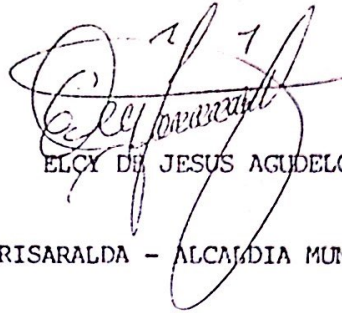 ELCY DE JESUS AGUDELO
RISARALDA - ALCALDIA MUN